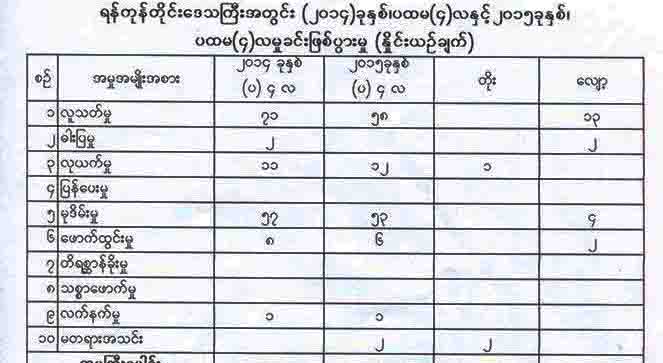 ရန်ကုန်တိုင်းဒေသကြီးအတွင်း (၂၀၁၄)ခုနှစ်၊ပထမ(၄)လနှင့်၂၀၁၅ခုနှစ်၊
ပထမ(၄)လမှုခင်းဖြစ်ပွားမှု (နှိုင်းယဉ်ချက်)
စဉ် အမှုအမျိုးအစား ၂၀၁၄ ခုနှစ် (ပ) ၄ လ ၂၀၁၅ခုနှစ် (ပ) ၄ လ တိုး လျော့
၁ လူသတ်မှု ၇၁ ၅၈ ၁၃
၂ ဓါးပြမှု ၂ ၂
၃ လုယက်မှု ၁၁ ၁၂ ၁
၄ ပြန်ပေးမှု
၅ မုဒိမ်းမှု ၅၇ ၅၃ ၄
၆ ဖောက်ထွင်းမှု ၈ ၆ ၂
၇ တိရစ္ဆာန်ခိုးမှု
၈ သစ္စာဖောက်မှု
၉ လက်နက်မှု ၁ ၁
၁၀ မတရားအသင်း ၂ ၂